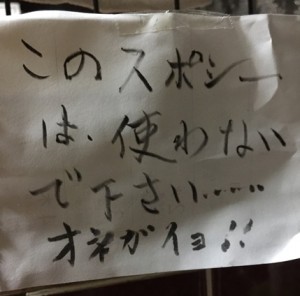 このスポシー
は、使わない
で下さい‥‥‥
オネガイヨ!!